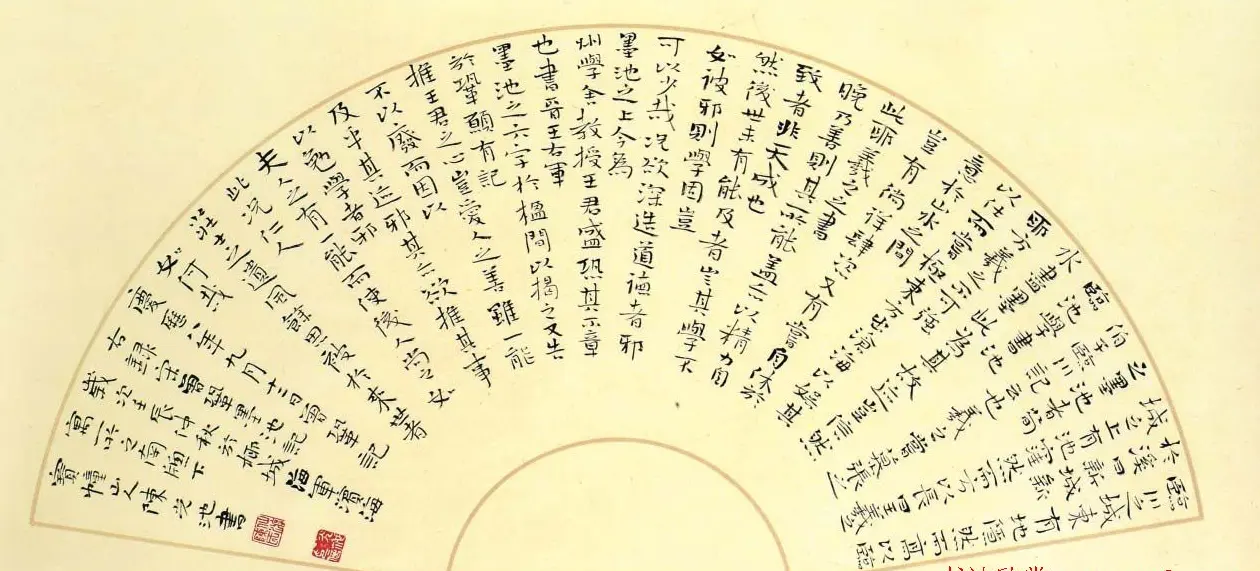 臨川之城東有地隱然而高以臨
於溪曰新城新
城之上有池窪然而方以長曰王羲之
之墨池者荀
伯子臨川記云也羲之嘗慕張芝
臨池學書
水盡黑此池為其故迹豈信然
耶方羲之之不可強
以仕而嘗極東方出滄海以娛其
意於山水之間
豈有徜徉肆恣又有嘗自休於
此耶羲之之書
晚乃善則其所能蓋亦以精力自
致者非天成也
然後世未有能及者豈其學不
如彼邪則學固豈
可以少哉况欲深造道德者邪
墨池之上今為
州學舍教授王君盛恐其不章
也書晉王右軍
墨池之六字於楹間以揭之又告
於鞏願有記
推王君之心豈愛人之善雖一能
不以廢而因以
及乎其迹邪其亦欲推其事
以勉學者邪
夫人之有一能而使後人尚之如
此况仁人
莊士之遺風餘思被於來世者
如何哉
慶曆八年九月十二日曾鞏記
右錄宋曾鞏墨池記
歲次壬辰仲秋於榕城海軍濱海
寓所之南窗下
寶幢山人陳 池書